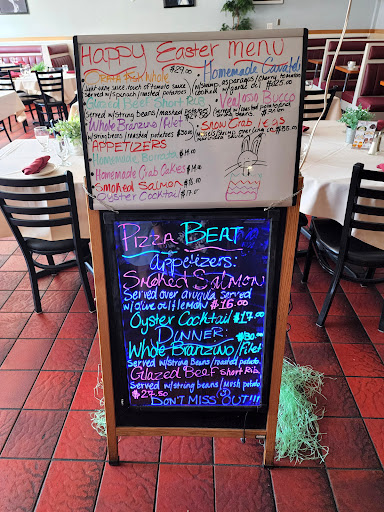 Happy Easter Menu
Orata Rck Whole $29.00
light garlic sauce, touch of tomato sauce
served w/Spinach/roasted potatoes
Glazed Beef Short Ribs
Served w/String beans
Whole Branzino/Filet
Stringbeans/roasted potatoes $30.00
APPETIZERS
Homemade Burrata $14.00
Homemade Crab Cakes $14.00
Smoked Salmon $16.00
Oyster Cocktail $17.00
Homemade Cavatelli
asparagus/cherry tomato
w/garlic oil $25.00
Veal Osso Buco
Snow Crab Legs
Pizza Beat
Appetizers:
Smoked Salmon
Served over arugula served
w/olive oil & lemon $16.00
Oyster Cocktail $17.00
Dinner: $30.00
Whole Branzino/Filet
Served w/String Beans/roasted potato
Glazed Beef Short Rib
Served w/string beans/mash potato
$27.50
Don't Miss Out!!!